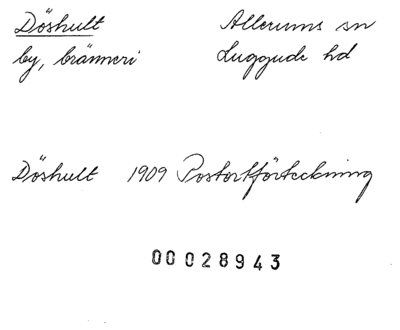 Döshult Allerums sn
by, bränneri Luggude hd
Döshult 1909 Postortförteckning
00028943